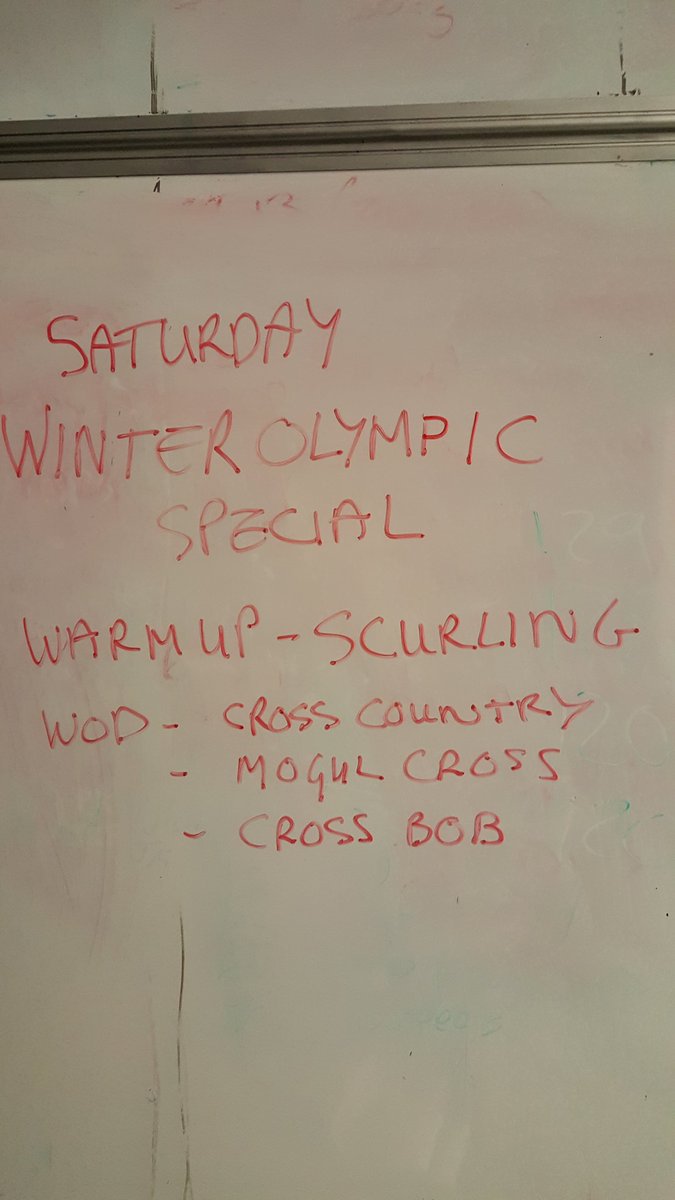 SATURDAY
WINTER OLYMPIC
SPECIAL
WARM UP - SCURLING
WOD - CROSS COUNTRY
- MOGUL CROSS
- CROSS BOB